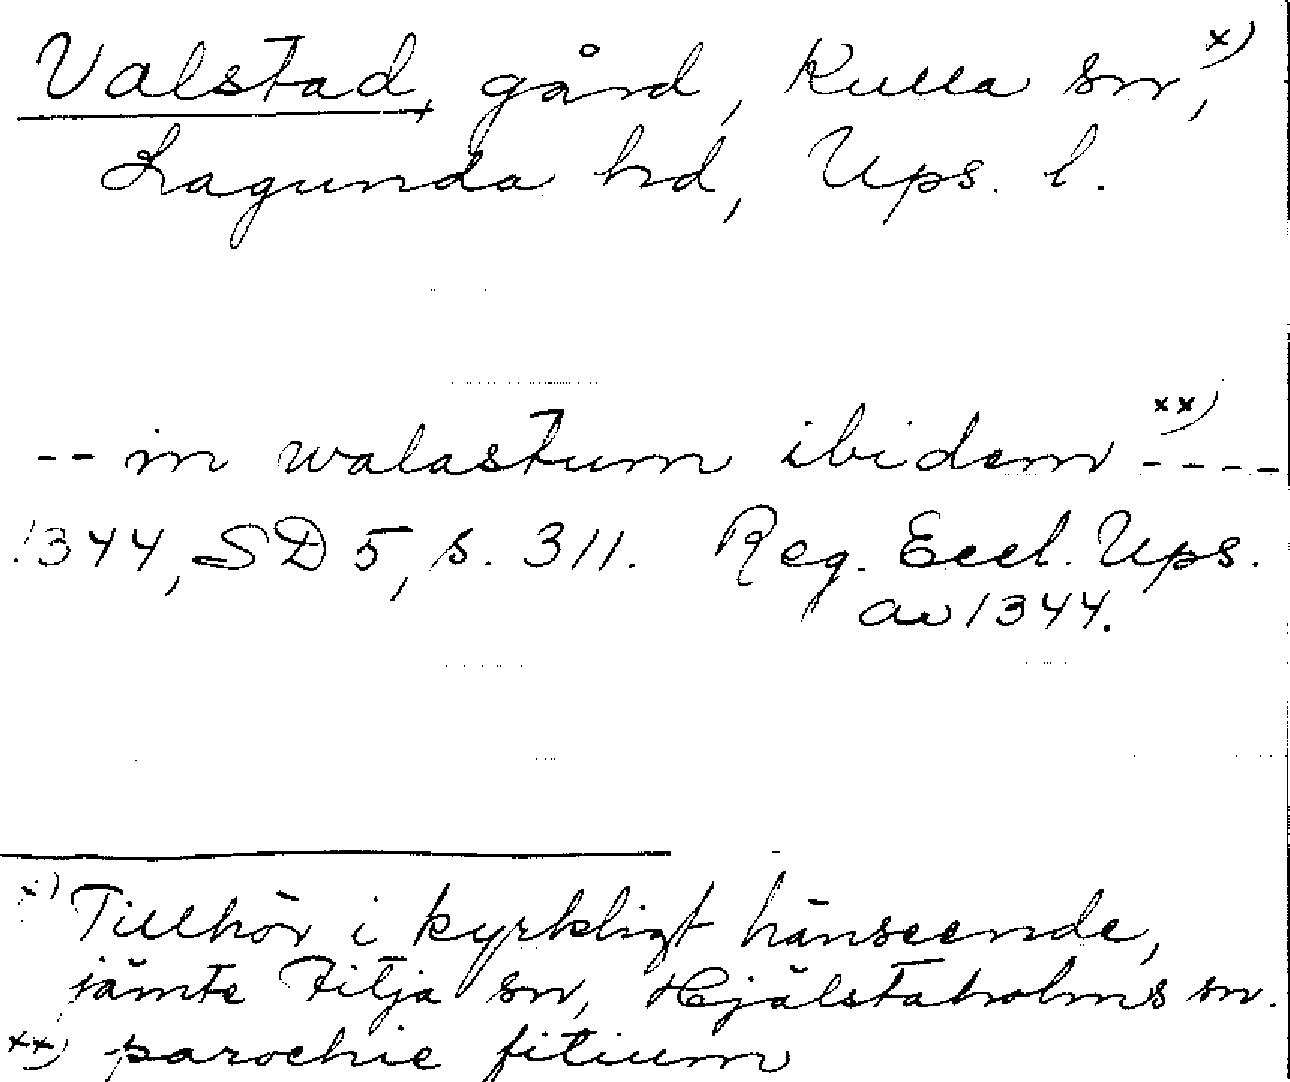 Valstad, gård, Kulla sn,ˣ⁾
Lagunda hd, Ups. l.
-- in walastum ibidem ˣˣ⁾ ----
1344, SD 5, s. 311. Reg. Eccl. Ups.
av 1344.
x) Tillhör i kyrkligt hänseende,
jämte Fitja sn, Hjälstaholms sn.
xx) parochie fitium